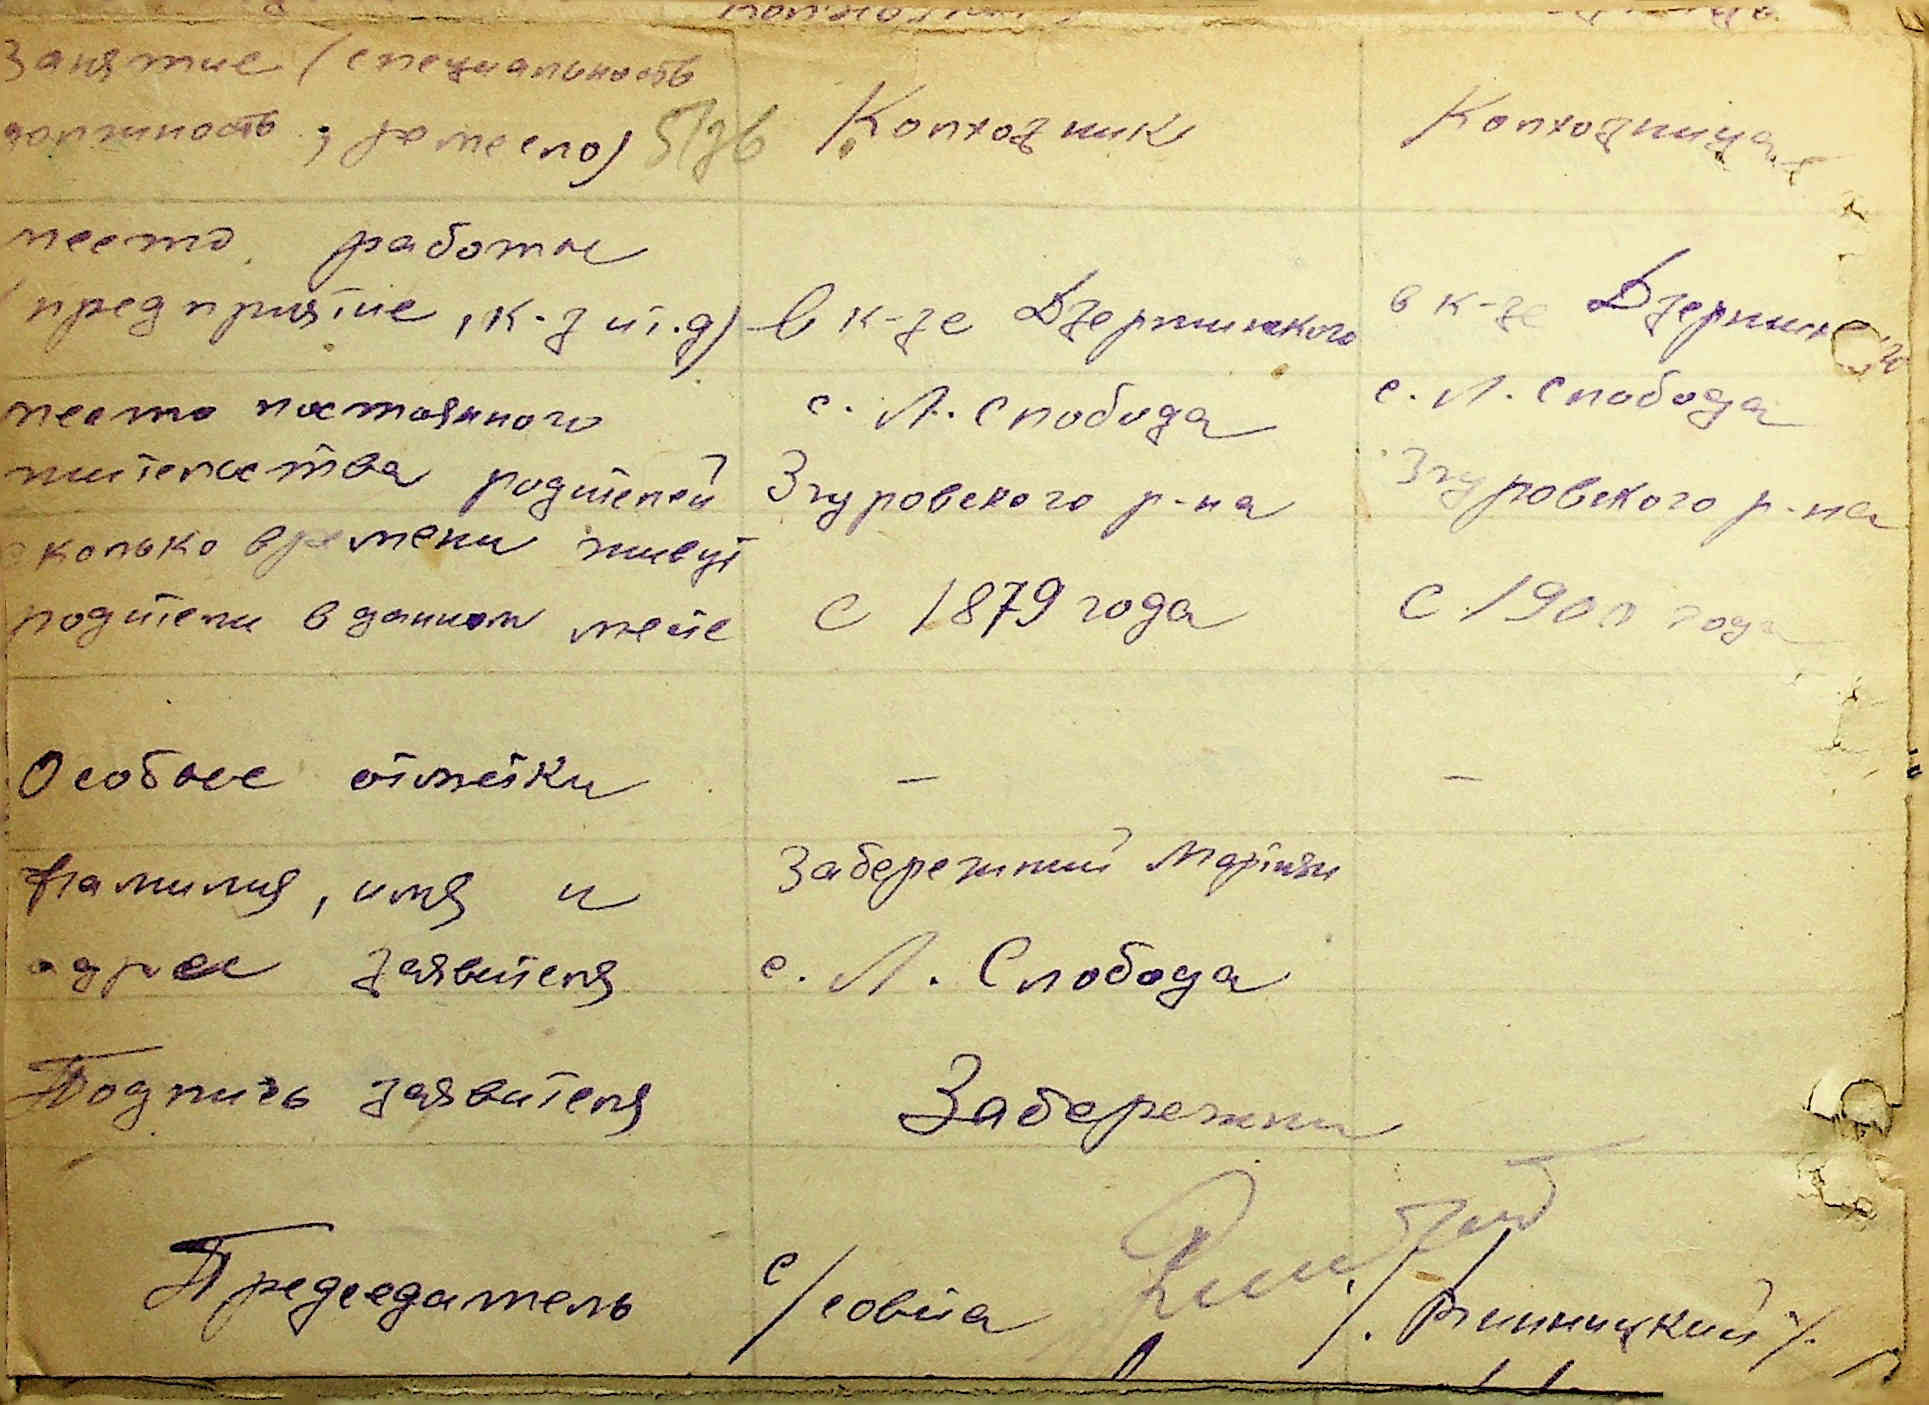 Занятие (специальность
должность, ремесло) Колхозник Колхозница
место работы
(предприятие, к-з и т.д) в к-зе Дзержинского в к-зе
место постоянного с. Л. Слобода с. Л. Слобода
жительства родителей Згуровского р-на Згуровского р-на
сколько времени живут
родители в данном месте с 1879 года с 1900 года
Особые отметки – –
Фамилия, имя и Забережний
адрес заявителя с. Л. Слобода
Подпись заявителя Забережни
Председатель с/совета